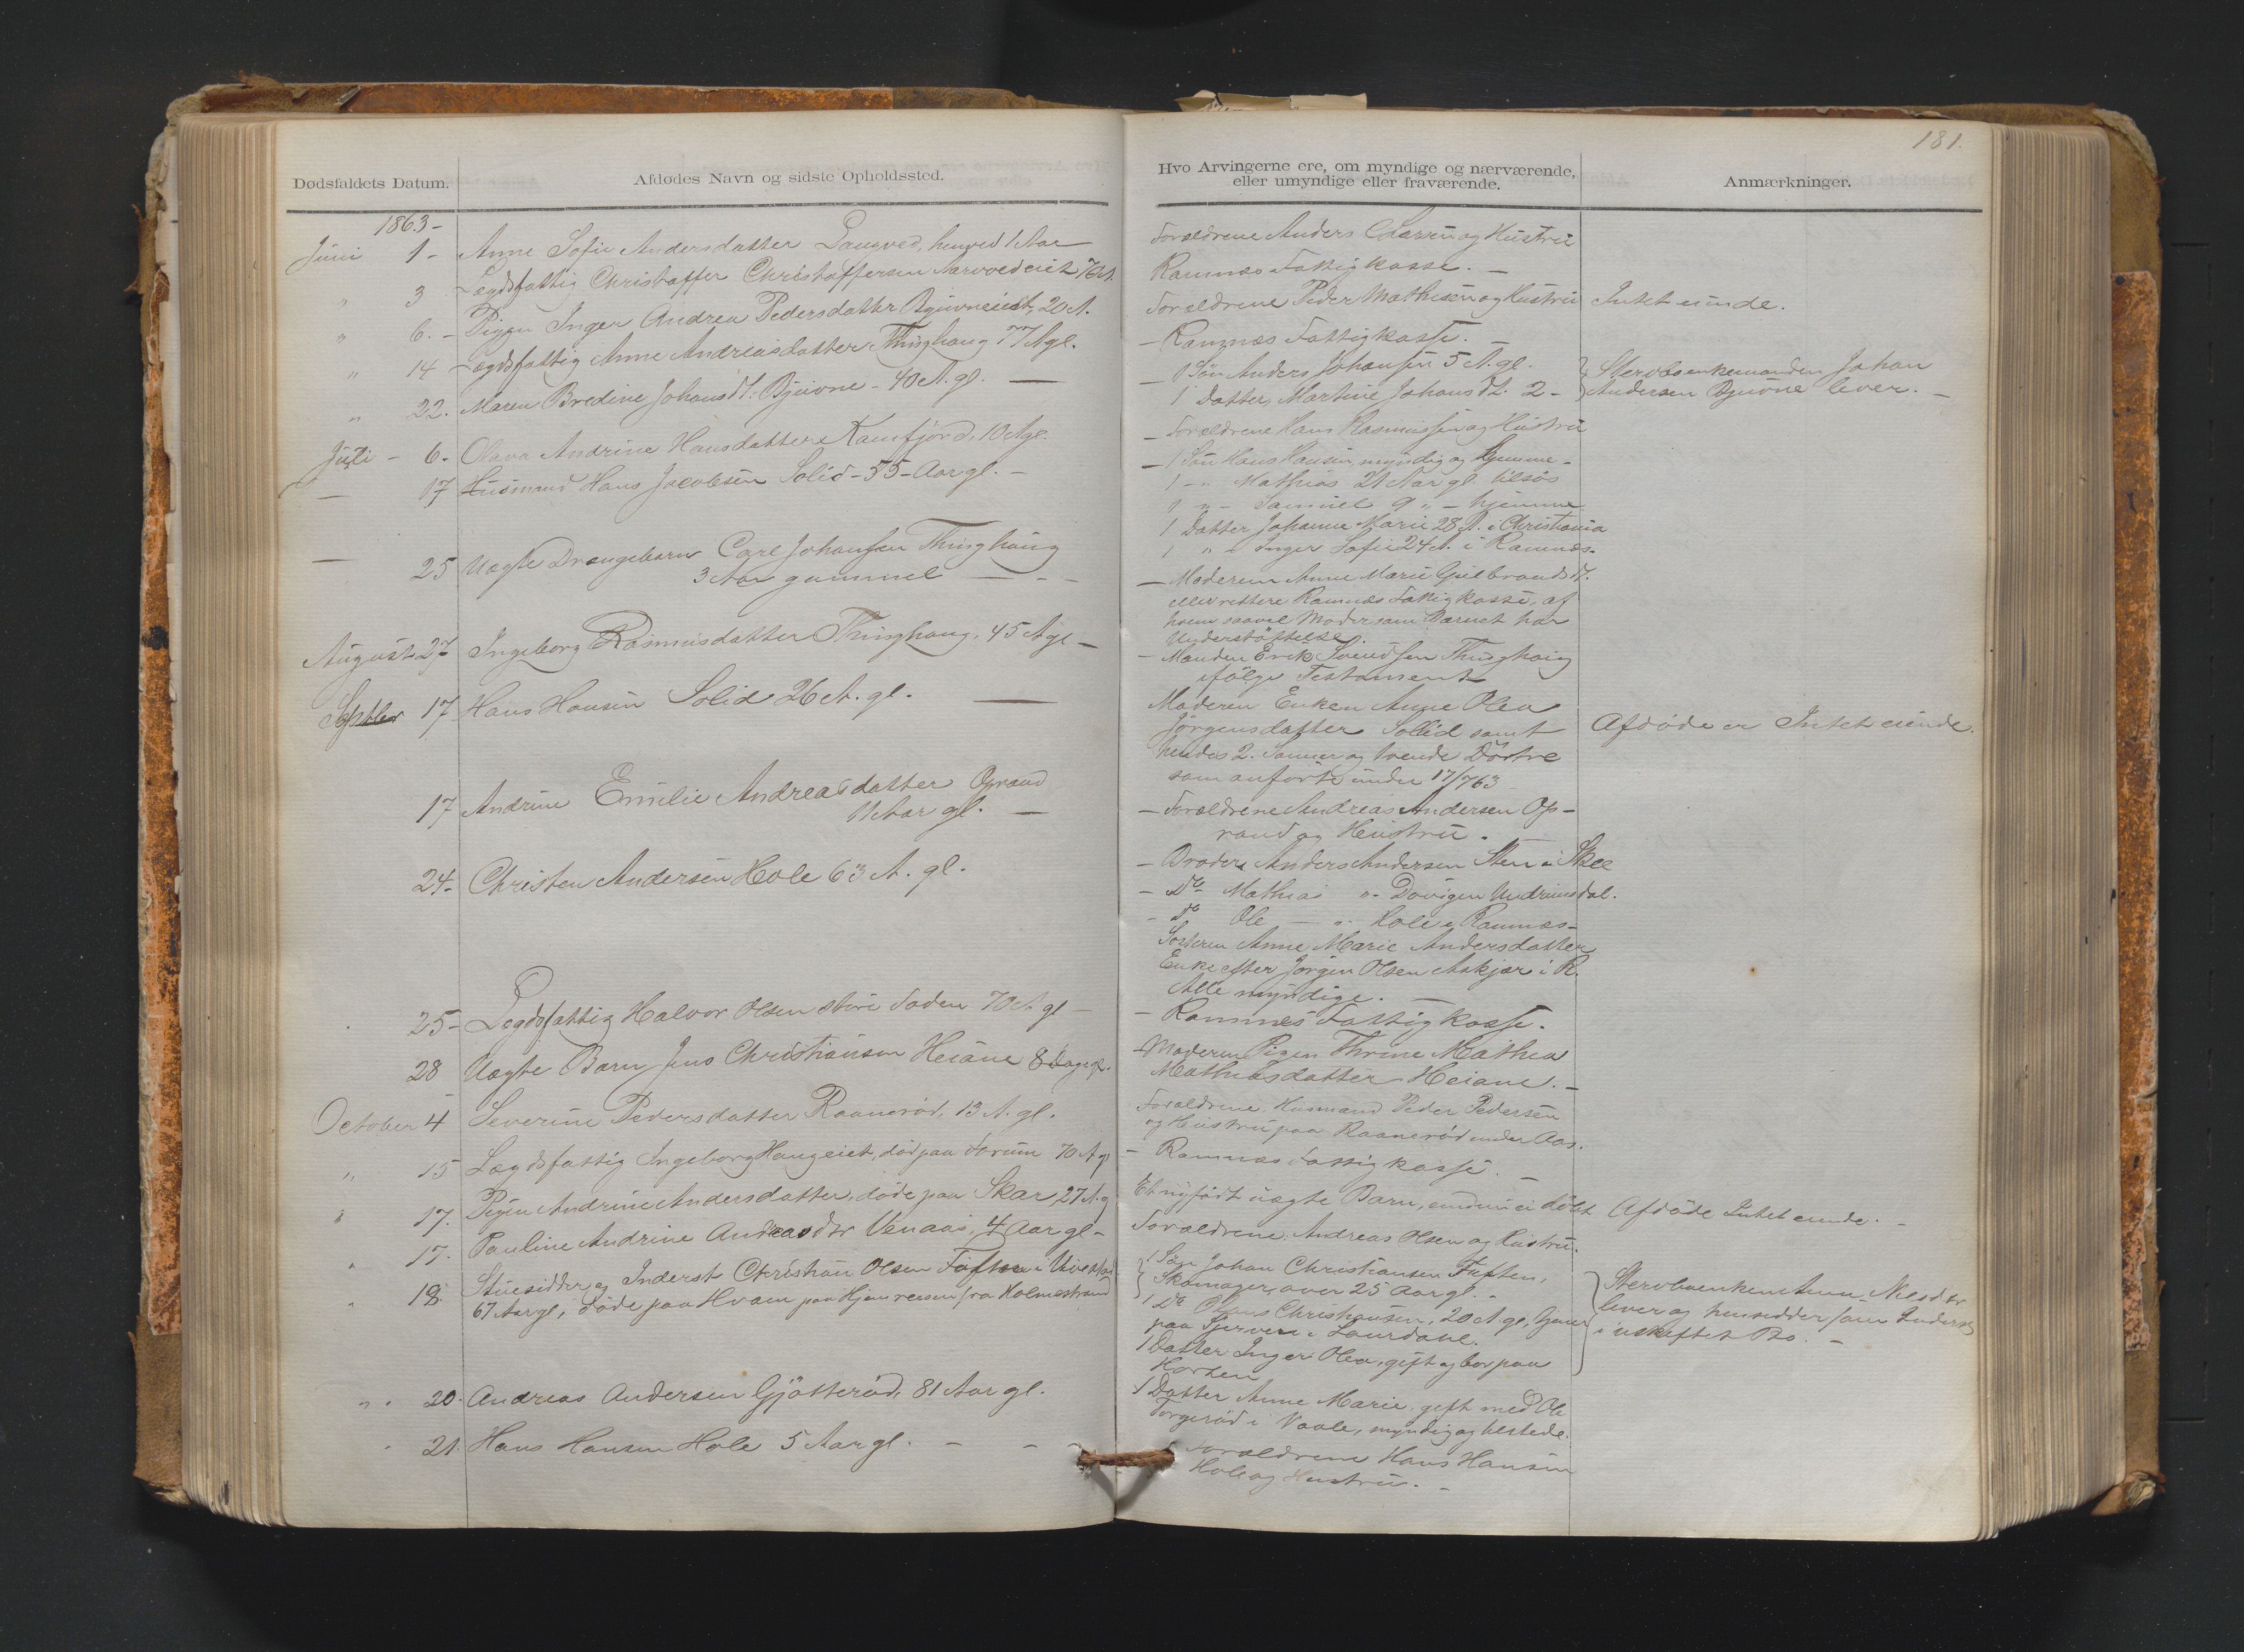 181.
Dødsfaldets Datum.
Afdødes Navn og sidste Opholdssted.
1863-
Juni 1 - Anne Sofie Andersdatter Langved, henved 1 Aar
" 3 Lægdsfattig Christoffer Christoffersen 76 A.
" 6. - Pigen Inger Andrea Pedersdatter Bjuerneiet, 20 A.
" 14 Lægdsfattig Anne Andreasdatter Thinghaug 77 A gl.
" 22. Maren Bredine Johansdt. Bjuone - 40 A. gl. —
Juli - 6. Olava Andrine Hansdatter Kamfjord, 10 A gl.
— 17 Husmand Hans Jacobsen Solid - 55 - Aar gl. -
— 25 Uægte Drengebarn Carl Johansen Thinghaug
3 Aar gammel — - -
August 27 Ingeborg Rasmusdatter Thinghaug, 45 A gl -
Septber 17 Hans Hansen Solid 26 A. gl. —
17 Andrine Emilie Andreasdatter Oprand
11 Aar gl. —
24 - Christen Andersen Hole 63 A. gl.
25 - Lægdsfattig Halvor Olsen store Foden 70 A gl -
28 Uægte Barn Jens Christiansen Heiane 8 Dage gl.
October 4 Severine Pedersdatter Raanerød, 13 A. gl.
" 15 Lægdsfattig Ingeborg Haugeiet, død paa Forum 70 A g
" 17. Pigen Andrine Andersdatter, døde paa Skar, 27 A. g
" 17. Pauline Andrine Andreasdtr Venaas, 4 Aar gl -
" 18. Stuesidder og Inderst Christian Olsen Toften i
67 Aar gl, døde paa Hvam paa Hjemreisen fra Holmestrand
" " 20. Andreas Andersen Gjøtterød, 81 Aar gl.
" 21. Hans Hansen Hole 5 Aar gl. - -
Hvo Arvingerne ere, om myndige og nærværende,
eller umyndige eller fraværende.
Anmærkninger.
Forældrene Anders Larsen og Hustru
Ramnæs Fattigkasse. -
Forældrene Peder Mathisen og Hustru Intet eiende.
- Ramnæs Fattigkasse. -
- 1 Søn Anders Johansen 5 A. gl.
1 Datter Martine Johansdt. 2 -
Stervboenkemanden Johan
Andersen Bjuone lever. -
- Forældrene Hans Rasmussen og Hustru
- 1 Søn Hans Hansen, myndig og hjemme -
1 - " Mathias 21 Aar gl. tilsøs
1 " - Samuel 9 " - hjemme
1 Datter Johanne Marie 28 A. i Christiania
1 " - Inger Sofie 24 A. i Ramnæs -
- Moderen Anne Marie Gulbrandsdt.
eller rettere Ramnæs Fattigkasse, af
hvem saavel Moder som Barnet har
Understøttelse.
- Manden Erik Svendsen Thinghaug
ifølge Testament
Moderen Enken Anne Olea
Jørgensdatter Sollid samt
hendes 2. Sønner og tvende Døtre
som anførte under 17/7 63
Afdøde er Intet eiende.
- Forældrene Andreas Andersen Op-
rand og Hustru.
- Broder Anders Andersen Sten i Skee
- Do Mathias " - Undrumsdal.
- Do Ole — " Hole i Ramnæs -
Søsteren Anne Marie Andersdatter
Enke efter Jørgen Olsen Askjær i R.
Alle myndige. —
- Ramnes Fattigkasse.
- Moderen Pigen Thrine Mathea
Mathiasdatter Heiane. -
Forældrene Husmand Peder Pedersen
og Hustru paa Raanerød under Aas.
- Ramnæs Fattigkasse. -
Et nyfødt uægte Barn, endnu ei døbt Afdøde Intet eiende. -
Forældrene Andreas Olsen og Hustru.
1 Søn Johan Christiansen Tuften,
Skomager, over 25 Aar gl. -
1 Do Hans Christiansen, 20 A gl, tjener
paa i Laurdahl.
1 Datter Inger Olea, gift og bor paa
Horten
Stervboenken Anne Nilsdtr
lever og hensidder som Inderst
i uskiftet Bo. -
1 Datter Anne Marie gift med Ole
Torgerød i Vaale, myndig og tilstede.
Forældrene Hans Hansen
Hole og Hustru. -